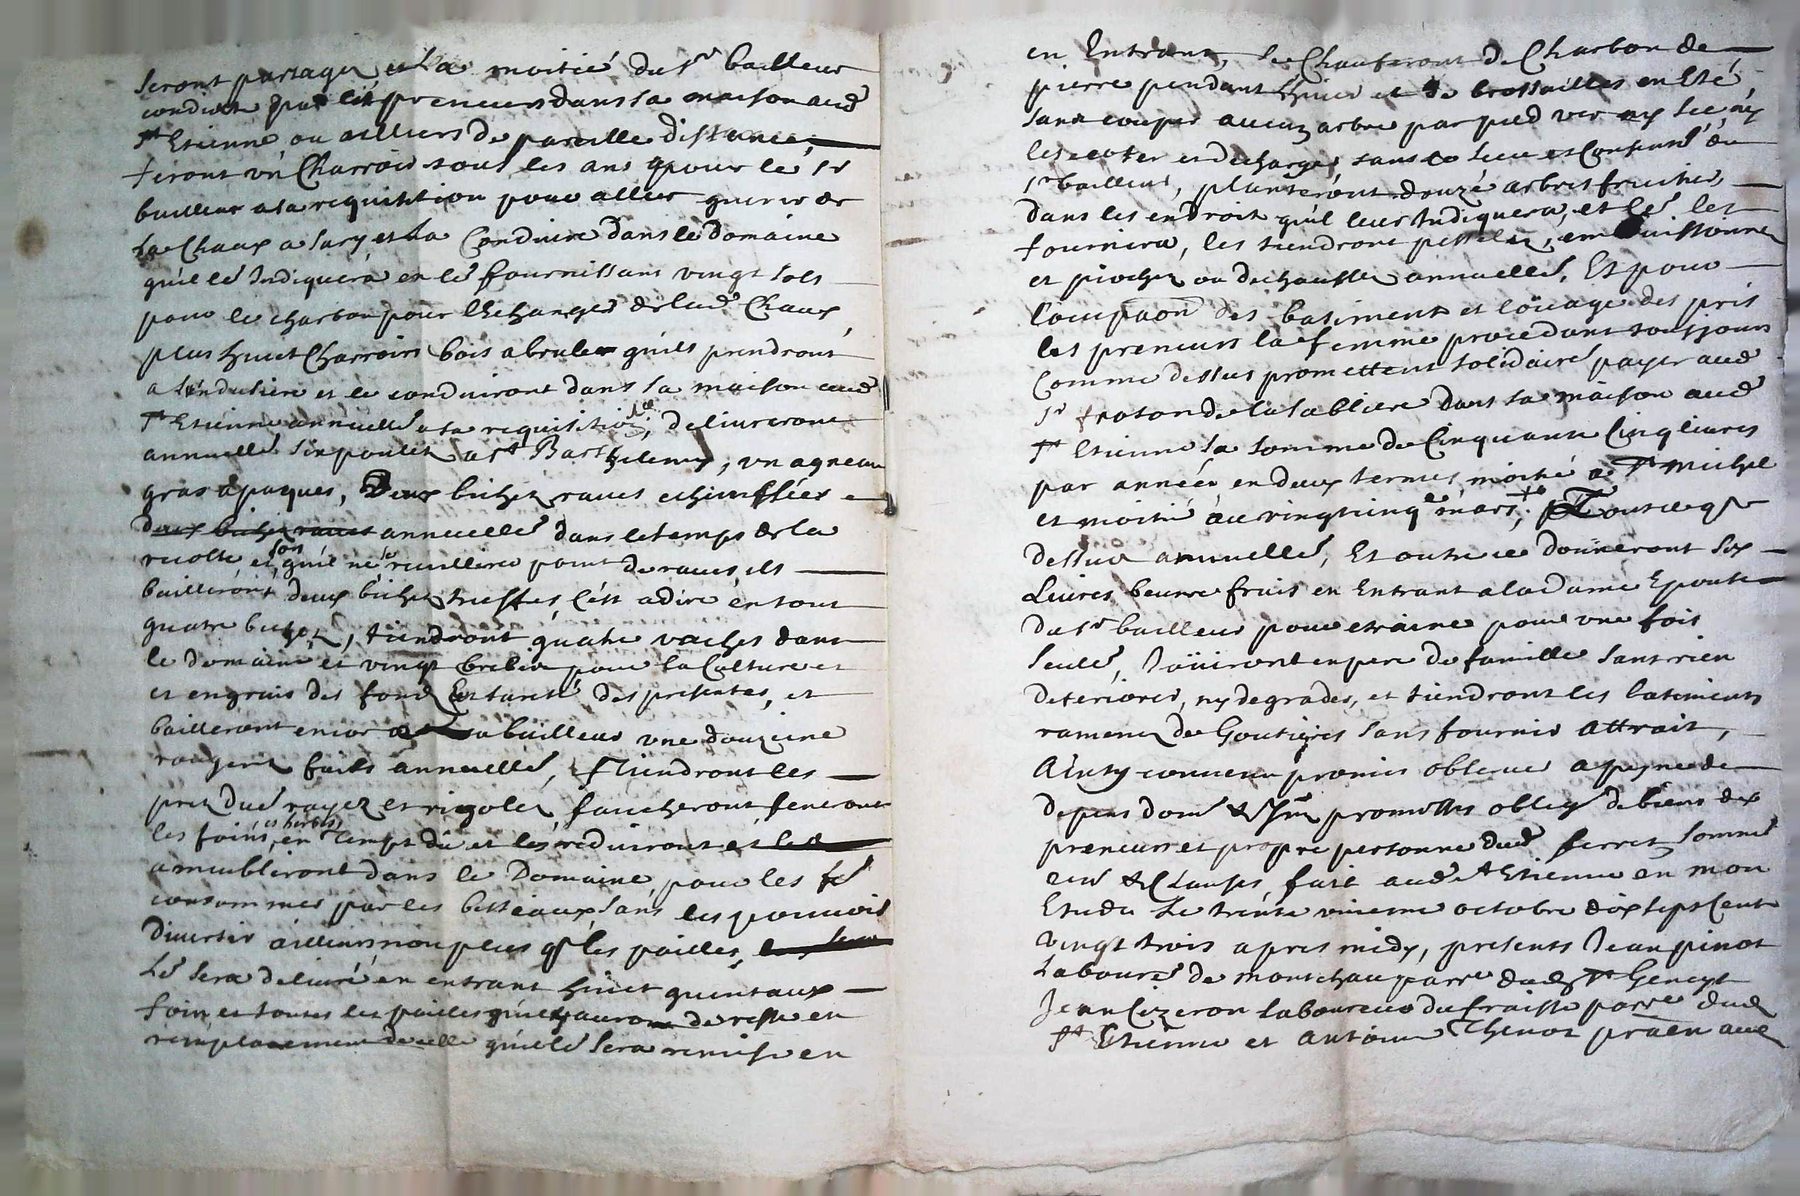 seront partagez et la moitié du Sr bailleur
conduite par les preneurs dans sa maison aud
St Etienne ou ailliers de pareille distance,
feront un Charrois tous les ans pour le sr
bailleur a sa requisition pour aller querir de
la Chaux a Sury et la Conduire dans le domaine
quil lé Indiquera en lé fournissant vingt sols
pour le charbon pour Léchange de lad Chaux,
plus huict Charrois bois abruler quils prendront
a et le conduiront dans sa maison aud
St Etienne annuellé a sa requisition, delivreront
annuellé six poulet a St Barthelemy, un agneau
gras a paques, Deux bichet raves
deux bichet raves annuellé dans le temps de la
recolte et quil ne se point de raves, ils
bailleront deux bichet cest a dire en tout
quatre bichet, tiendront quatre vaches dans
le domaine et vingt brebis pour la Culture et
et engrais des fond des presentes, et
bailleront encor a bailleur une douzeine
fait annuellé, tiendront les
prez dué rayez et rigolez, faucheront feneront
les foins, es herbes en temps dû et les reduiront et les
ameubliront dans le Domaine, pour les
consommer par les bestéaux, sans les pouvoir
divertir ailliurs non plus q les pailles,
Lé sera delivré en entrant huict quintaux
foin et toutes les pailles quil y aura de reste en
remplacement de celle quilé sera remise en
en Entrant, se Chauferont de Charbon de
pierre pendant Lhiver et de brossailles en Eté,
sans couper aucuz arbre par pied ver ny sec, ny
les ecoter et decharger sans le sceu et Consenté du
Sr bailleur, planteront douze arbres fruitier,
dans les endroit quil leur Indiquera, et lé les
fournira, les tiendront
et piocher ou dechausser annuellé, Et pour
Loccupaon des batiment et loüage des pris
les preneurs la femme procedant tousjours
Comme dessus promettent solidairé payer aud
Sr froton de la sabliere dans sa maison aud
St Etienne la somme de Cinquante Cinq livres
par année en deux termes, moitié a St Michel
et moitié au vingtcinq mars, Tout ce q
dessus annuellé, Et outre ce donneront six
Livres beurre frais en Entrant a la dame Epouse
du Sr bailleur pour etraine pour une fois
seulé, Joüiront en pere de famille sans rien
deteriorer, ny degrader, et tiendront les batiments
ramenez de Goutieres sans fournir attrait,
Ainsy convenu promis observé a peyne de
depens dom & promesses obligé de biens des
preneurs et propre personne dud ferret Soumis
ren & Clauses, fait aud St Etienne en mon
Etude Le trente unieme octobre dix sept Cents
vingt trois apres midy, presents Jean pinot
Labouré de montchau parre dud St Genest
Jean Cizeron laboureur du fraisse parre dud
St Etienne et antoine Thenot praen aud